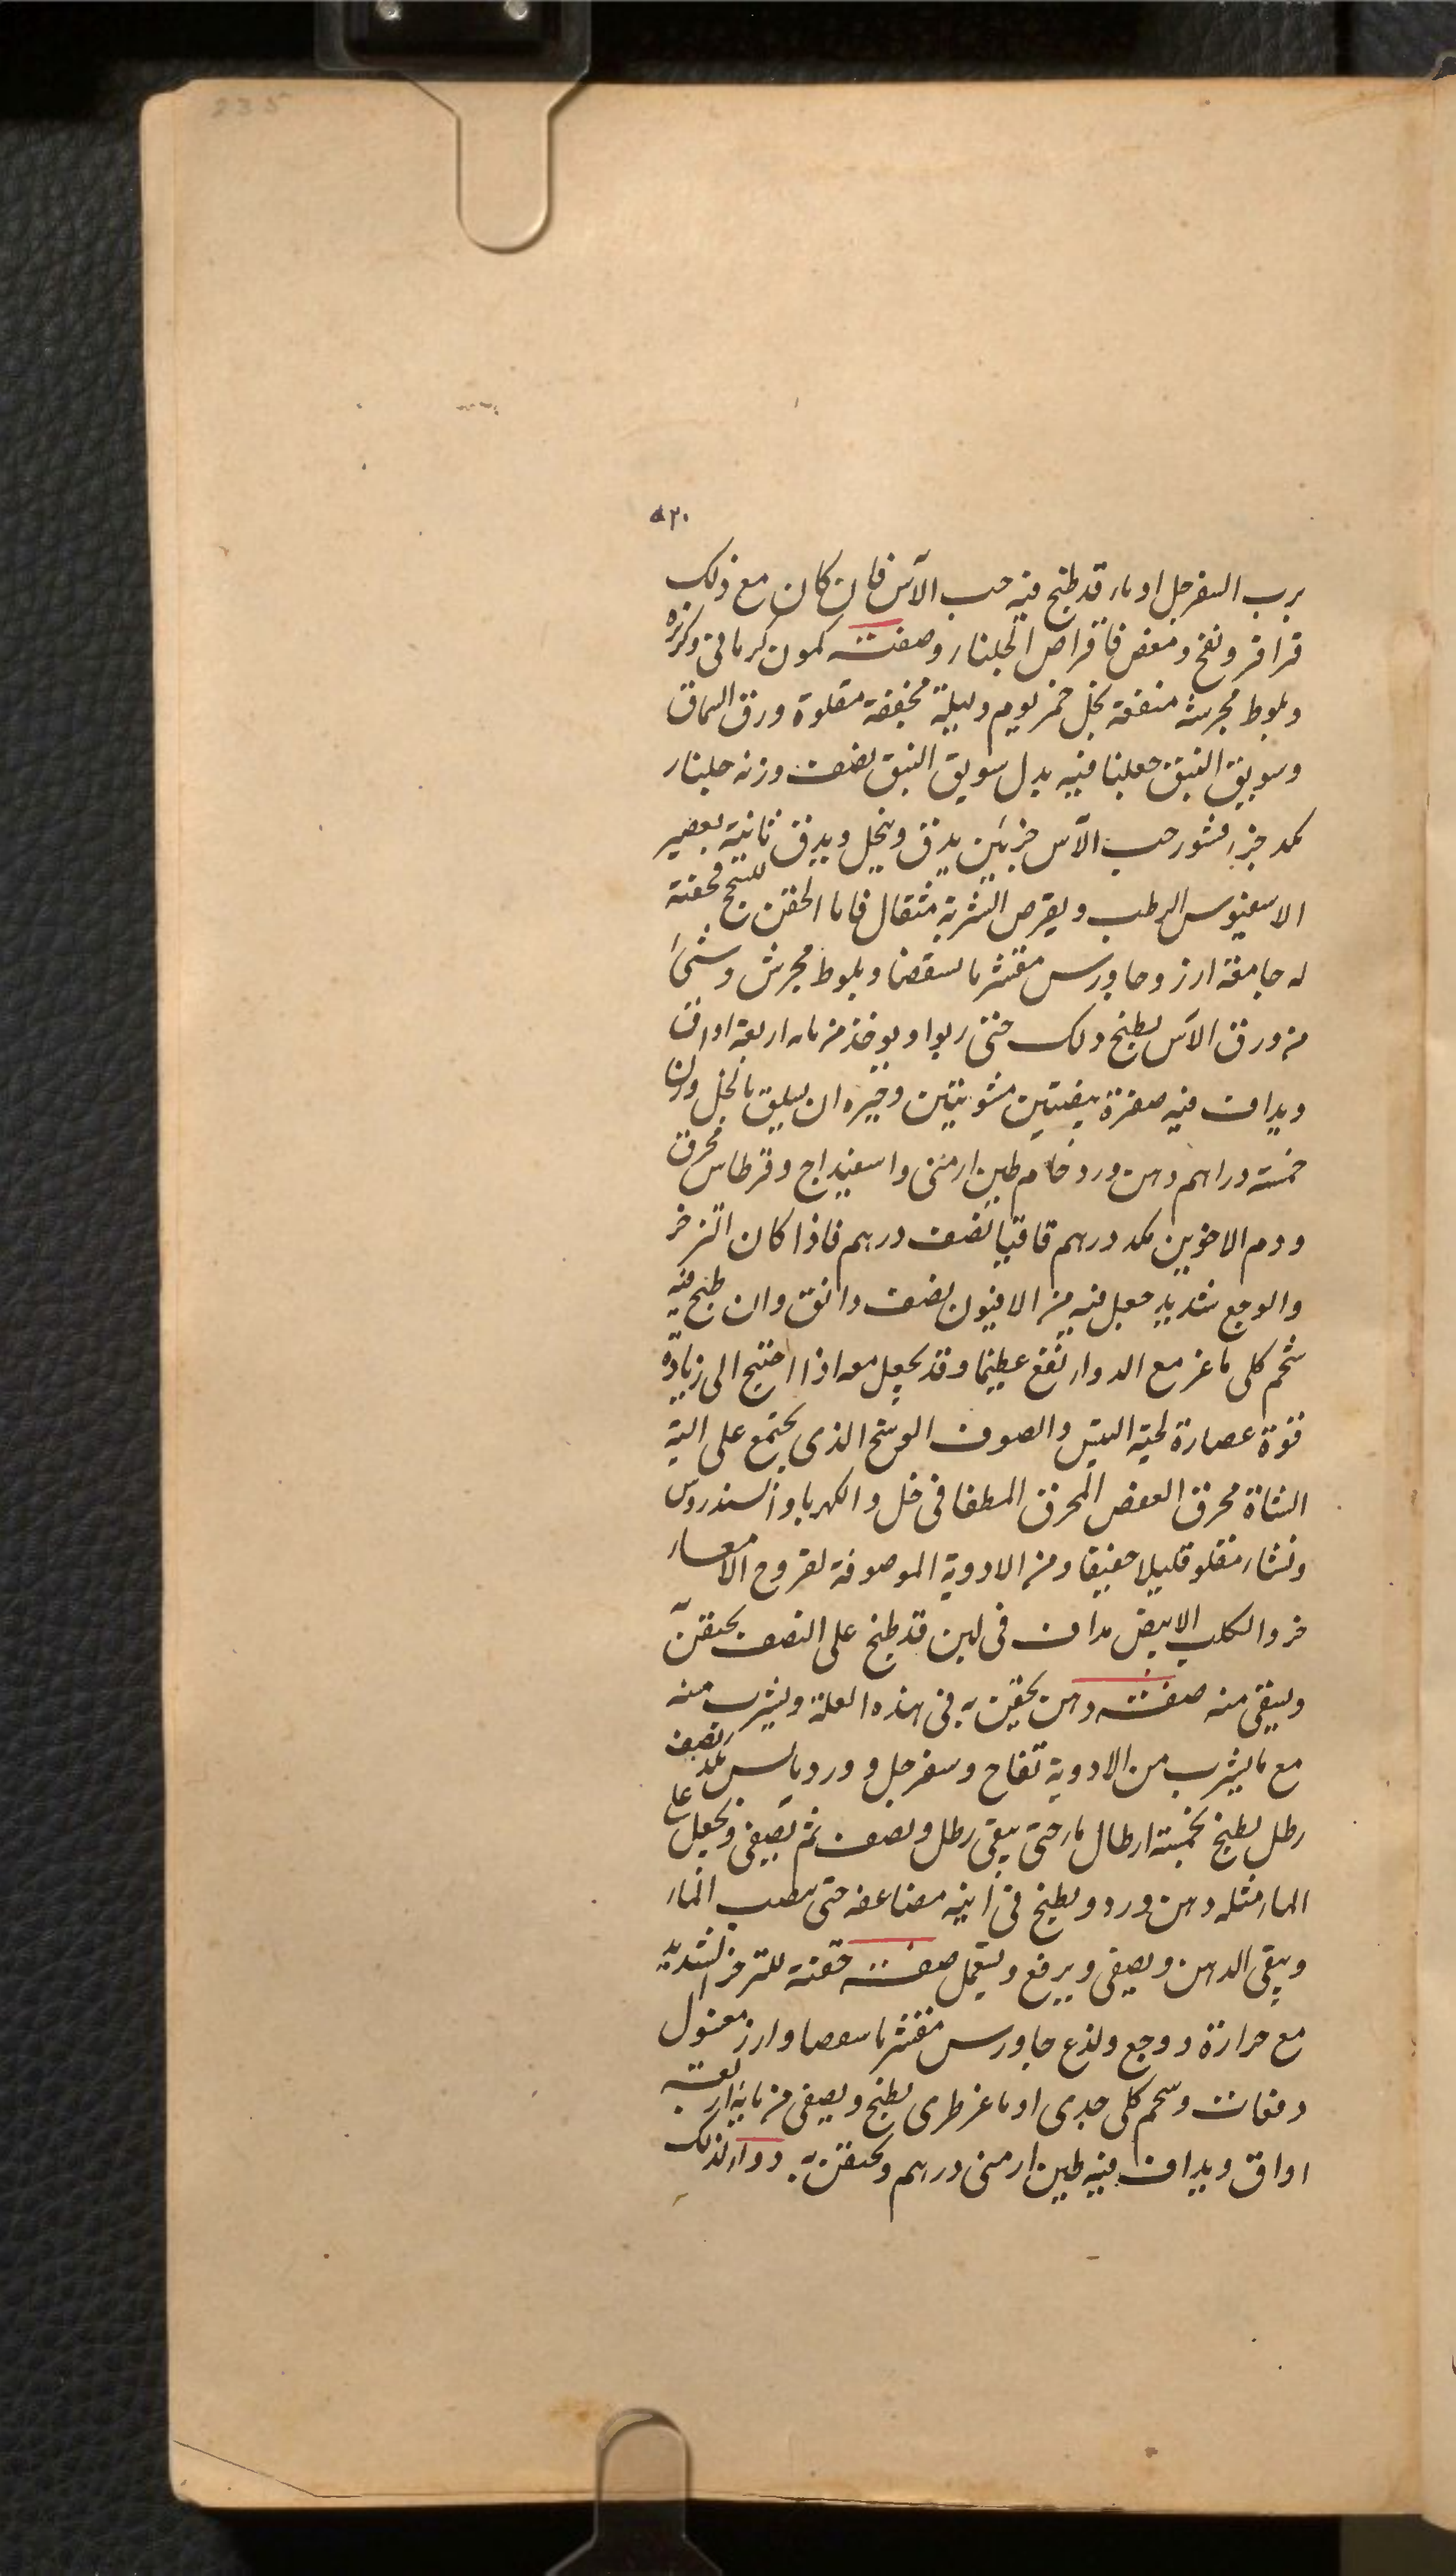 235
٥٢٠
برب السفرجل او ماء قد طبخ فيه حب الآس فان كان مع ذلك
قراقر ونفخ ومغص فاقراص الجلنار وصفته كمون كرمانى وكزبره
وبلوط مجرش منقعة بخل خمر يوم وليلة مجففة مقلوة ورق السماق
وسويق النبق جعلنا فيه بدل سويق النبق نصف وزنه جلنار
كمد جزء قشور حب الآس جزئين يدق وينخل ويدق ثانية بعصير
الاسفيوس الرطب ويقرص الشربة مثقال فاما الحقن للسحج فحقنة
له جامعة ارز وجاورس مقشر بالسقصا وبلوط مجرش وشئ
من ورق الآس يطبخ ذلك حتى ربوا ويوخذ من مائه اربعة اواق
ويداف فيه صفرة بيضتين مشويتين وخيره ان يسلق بالخل وزن
خمسة دراهم دهن ورد خام طين ارمنى واسفيداج وقرطاس محرق
ودم الاخوين كمد درهم قاقيا نصف درهم فاذا كان التزخر
والوجع شديد جعل فيه من الافيون نصف دانق وان طبخ فيه
شحم كلى ماعز مع الدواء نفع عظيما وقد يجعل معه اذا احتيج الى زيادة
قوة عصارة لحية التيس والصوف الوسخ الذى يجتمع على الية
الشاة محرق العفص المحرق المطفا فى خل والكهربا والسندروس
ونشاء مقلو قليلا خفيفا ومن الادوية الموصوفة لقروح الامعاء
خرو الكلب الابيض مداف فى لبن قد طبخ على النصف يحتقن
ويسقى منه صفته دهن يحقن به فى هذه العلة ويشرب منه
مع ما يشرب من الادوية تفاح وسفرجل وورد يابس كمد نصف
رطل يطبخ بخمسة ارطال ماء حتى يبقى رطل ونصف ثم يصفى ويجعل على
الماء مثله دهن ورد ويطبخ فى انيه مضاعفه حتى ينضب الماء
ويبقى الدهن ويصفى ويرفع ويستعمل صفته حقنة للتزخر الشديد
مع حرارة ووجع ولذع جاورس مقشر باسعصا وارز مغسول
دفعات وشحم كلى جدى او ماعز طرى يطبخ ويصفى من مايه اربعة
اواق ويداف فيه طين ارمنى درهم ويحتقن به دواء لذلك